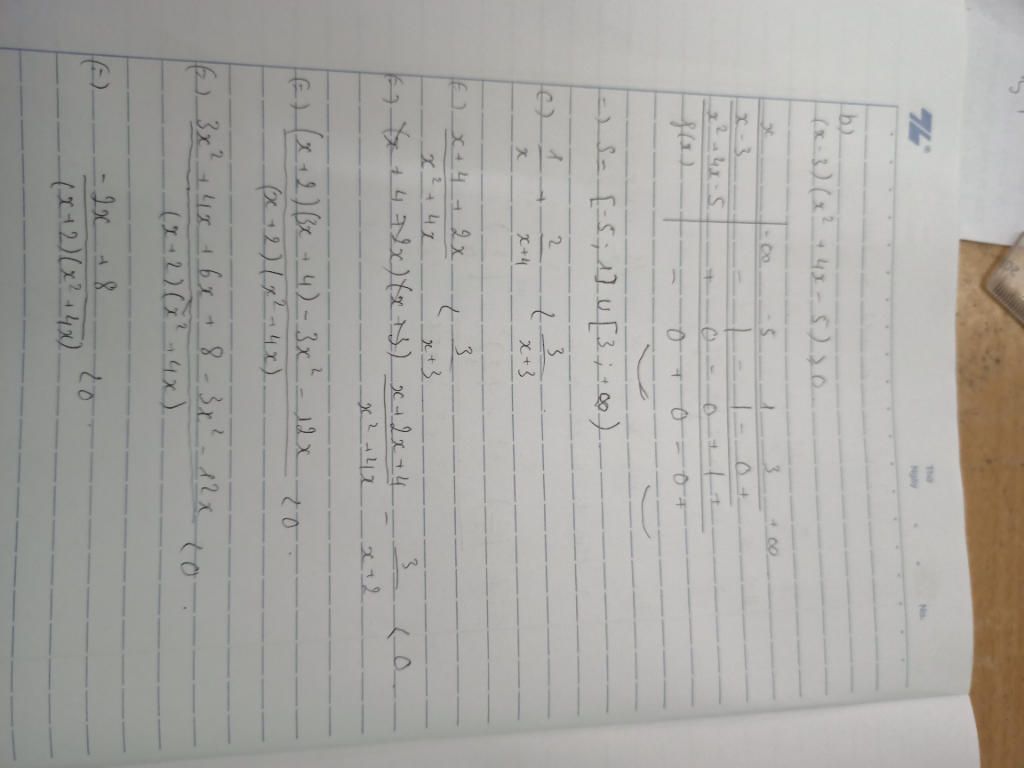 Thứ
Ngày
No.
b)
(x-3)(x² + 4x - 5) ≥ 0
x -∞ -5 1 3 +∞
x-3 - | - | - 0 +
x²+4x-5 + 0 - 0 + | +
f(x) - 0 + 0 - 0 +
=) S = [-5; 1] ∪ [3; +∞)
c) 1/x + 2/(x+4) < 3/(x+3)
(=) (x+4+2x)/(x²+4x) < 3/(x+3)
(x+2x+4)/(x²+4x) - 3/(x+2) < 0
(=) ((x+2)(3x+4) - 3x² - 12x)/((x+2)(x²+4x)) < 0.
(=) (3x² + 4x + 6x + 8 - 3x² - 12x)/((x+2)(x²+4x)) < 0.
(=) (-2x + 8)/((x+2)(x²+4x)) < 0.